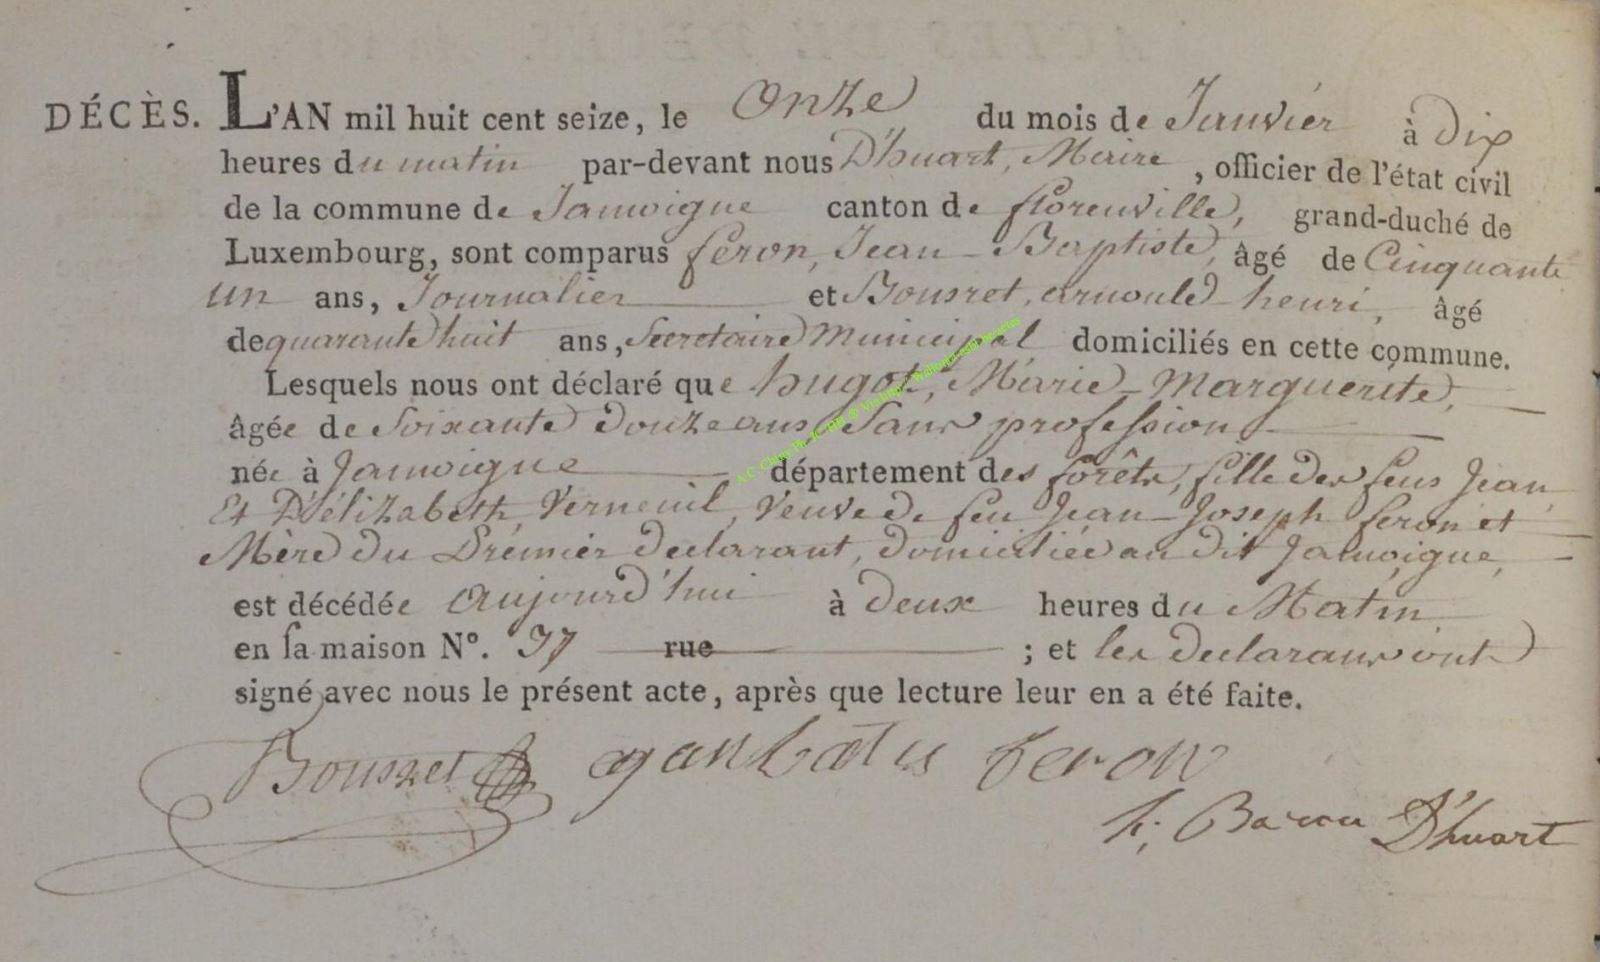 DÉCÈS. L'AN mil huit cent seize, le Onze du mois de Janvier à Dix
heures du matin par-devant nous D'huart, Maire, officier de l'état civil
de la commune de Jamoigne canton de florenville, grand-duché de
Luxembourg, sont comparus feron, Jean-Baptiste, âgé de Cinquante
un ans, Journalier et Bousret, arnould henri, âgé
de quarante huit ans, Secretaire Municipal domiciliés en cette commune.
Lesquels nous ont déclaré que hugot, Marie-Marguerite,
âgée de Soixante Douze ans Sans profession
née à Jamoigne département des forêts, fille des feus Jean
Et D'élizabeth, Verneuil, Veuve de feu Jean-Joseph feron et
Mère du Premier declarant, domiciliée au dit Jamoigne,
est décédée aujourd'hui à deux heures du Matin
en sa maison Nº. 37 rue ; et les declarans ont
signé avec nous le présent acte, après que lecture leur en a été faite.
Bousret feron
Baron D'huart